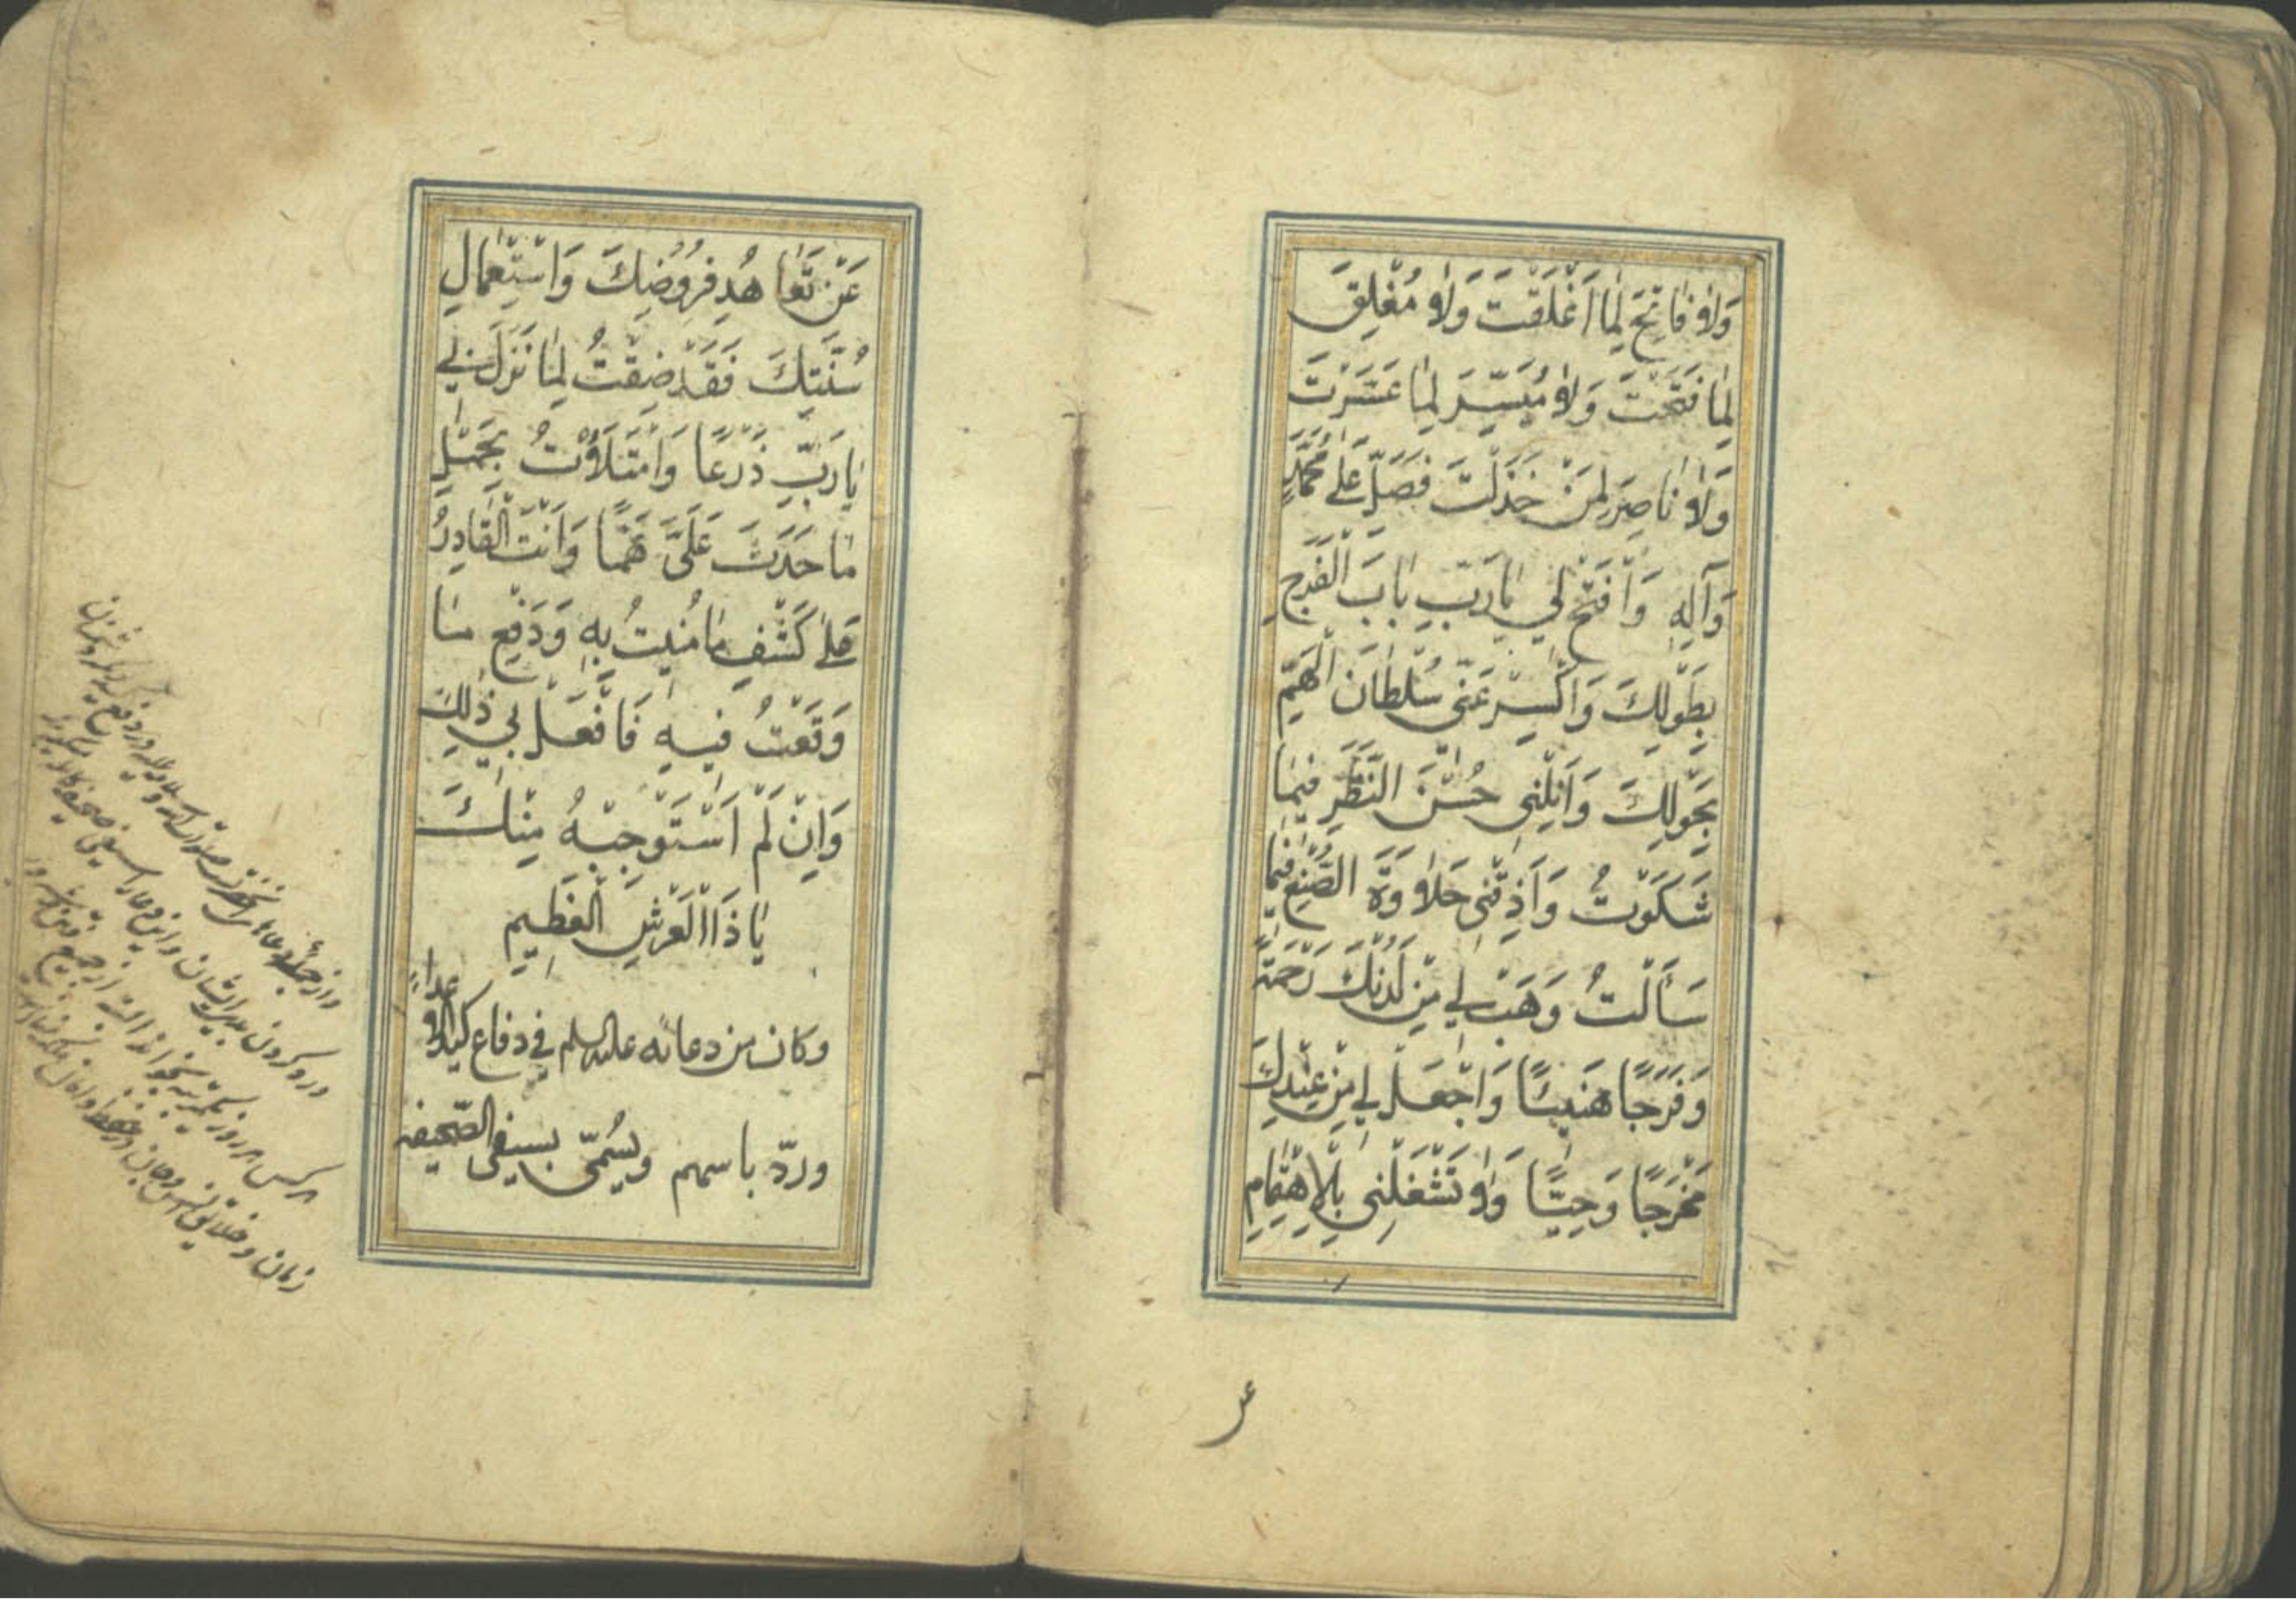 وَلاٰ فٰاتِحَ لِمٰا اَغْلَقْتَ وَلاٰ مُغْلِقَ
لِمٰا فَتَحْتَ وَلاٰ مُيَسِّرَ لِمٰا عَسَّرْتَ
وَلاٰ نٰاصِرَ لِمَنْ خَذَلْتَ فَصَلِّ عَلٰى مُحَمَّدٍ
وَآلِهِ وَافْتَحْ لِي يٰا رَبِّ بٰابَ الْفَرَجِ
بِطَوْلِكَ وَاكْسِرْ عَنّى سُلْطٰانَ الْهَمِّ
بِحَوْلِكَ وَاَنِلْنِى حُسْنَ النَّظَرِ فِيمٰا
شَكَوْتُ وَاَذِقْنِى حَلاٰوَةَ الصُّنْعِ فِيمٰا
سَأَلْتُ وَهَبْ لِي مِنْ لَدُنْكَ رَحْمَةً
وَفَرَجًا هَنِيئًا وَاجْعَلْ لِي مِنْ عِنْدِكَ
مَخْرَجًا وَحِيًّا وَلاٰ تَشْغَلْنِى بِالْاِهْتِمٰامِ
عن
عَنْ تَعٰاهُدِ فُرُوضِكَ وَاسْتِعْمٰالِ
سُنَّتِكَ فَقَدْ ضِقْتُ لِمٰا نَزَلَ بِي
يٰا رَبِّ ذَرْعًا وَامْتَلَأْتُ بِحَمْلِ
مٰا حَدَثَ عَلَىَّ هَمًّا وَاَنْتَ الْقٰادِرُ
عَلٰى كَشْفِ مٰا مُنِيتُ بِهِ وَدَفْعِ مٰا
وَقَعْتُ فِيهِ فَافْعَلْ بِي ذٰلِكَ
وَاِنْ لَمْ اَسْتَوْجِبْهُ مِنْكَ
يٰا ذَا الْعَرْشِ الْعَظِيمِ
وكان من دعائه عليه السلم في دفاع كيد الاعداء
وردّ باسهم ويُسمّى بسيفى الصّحيفه